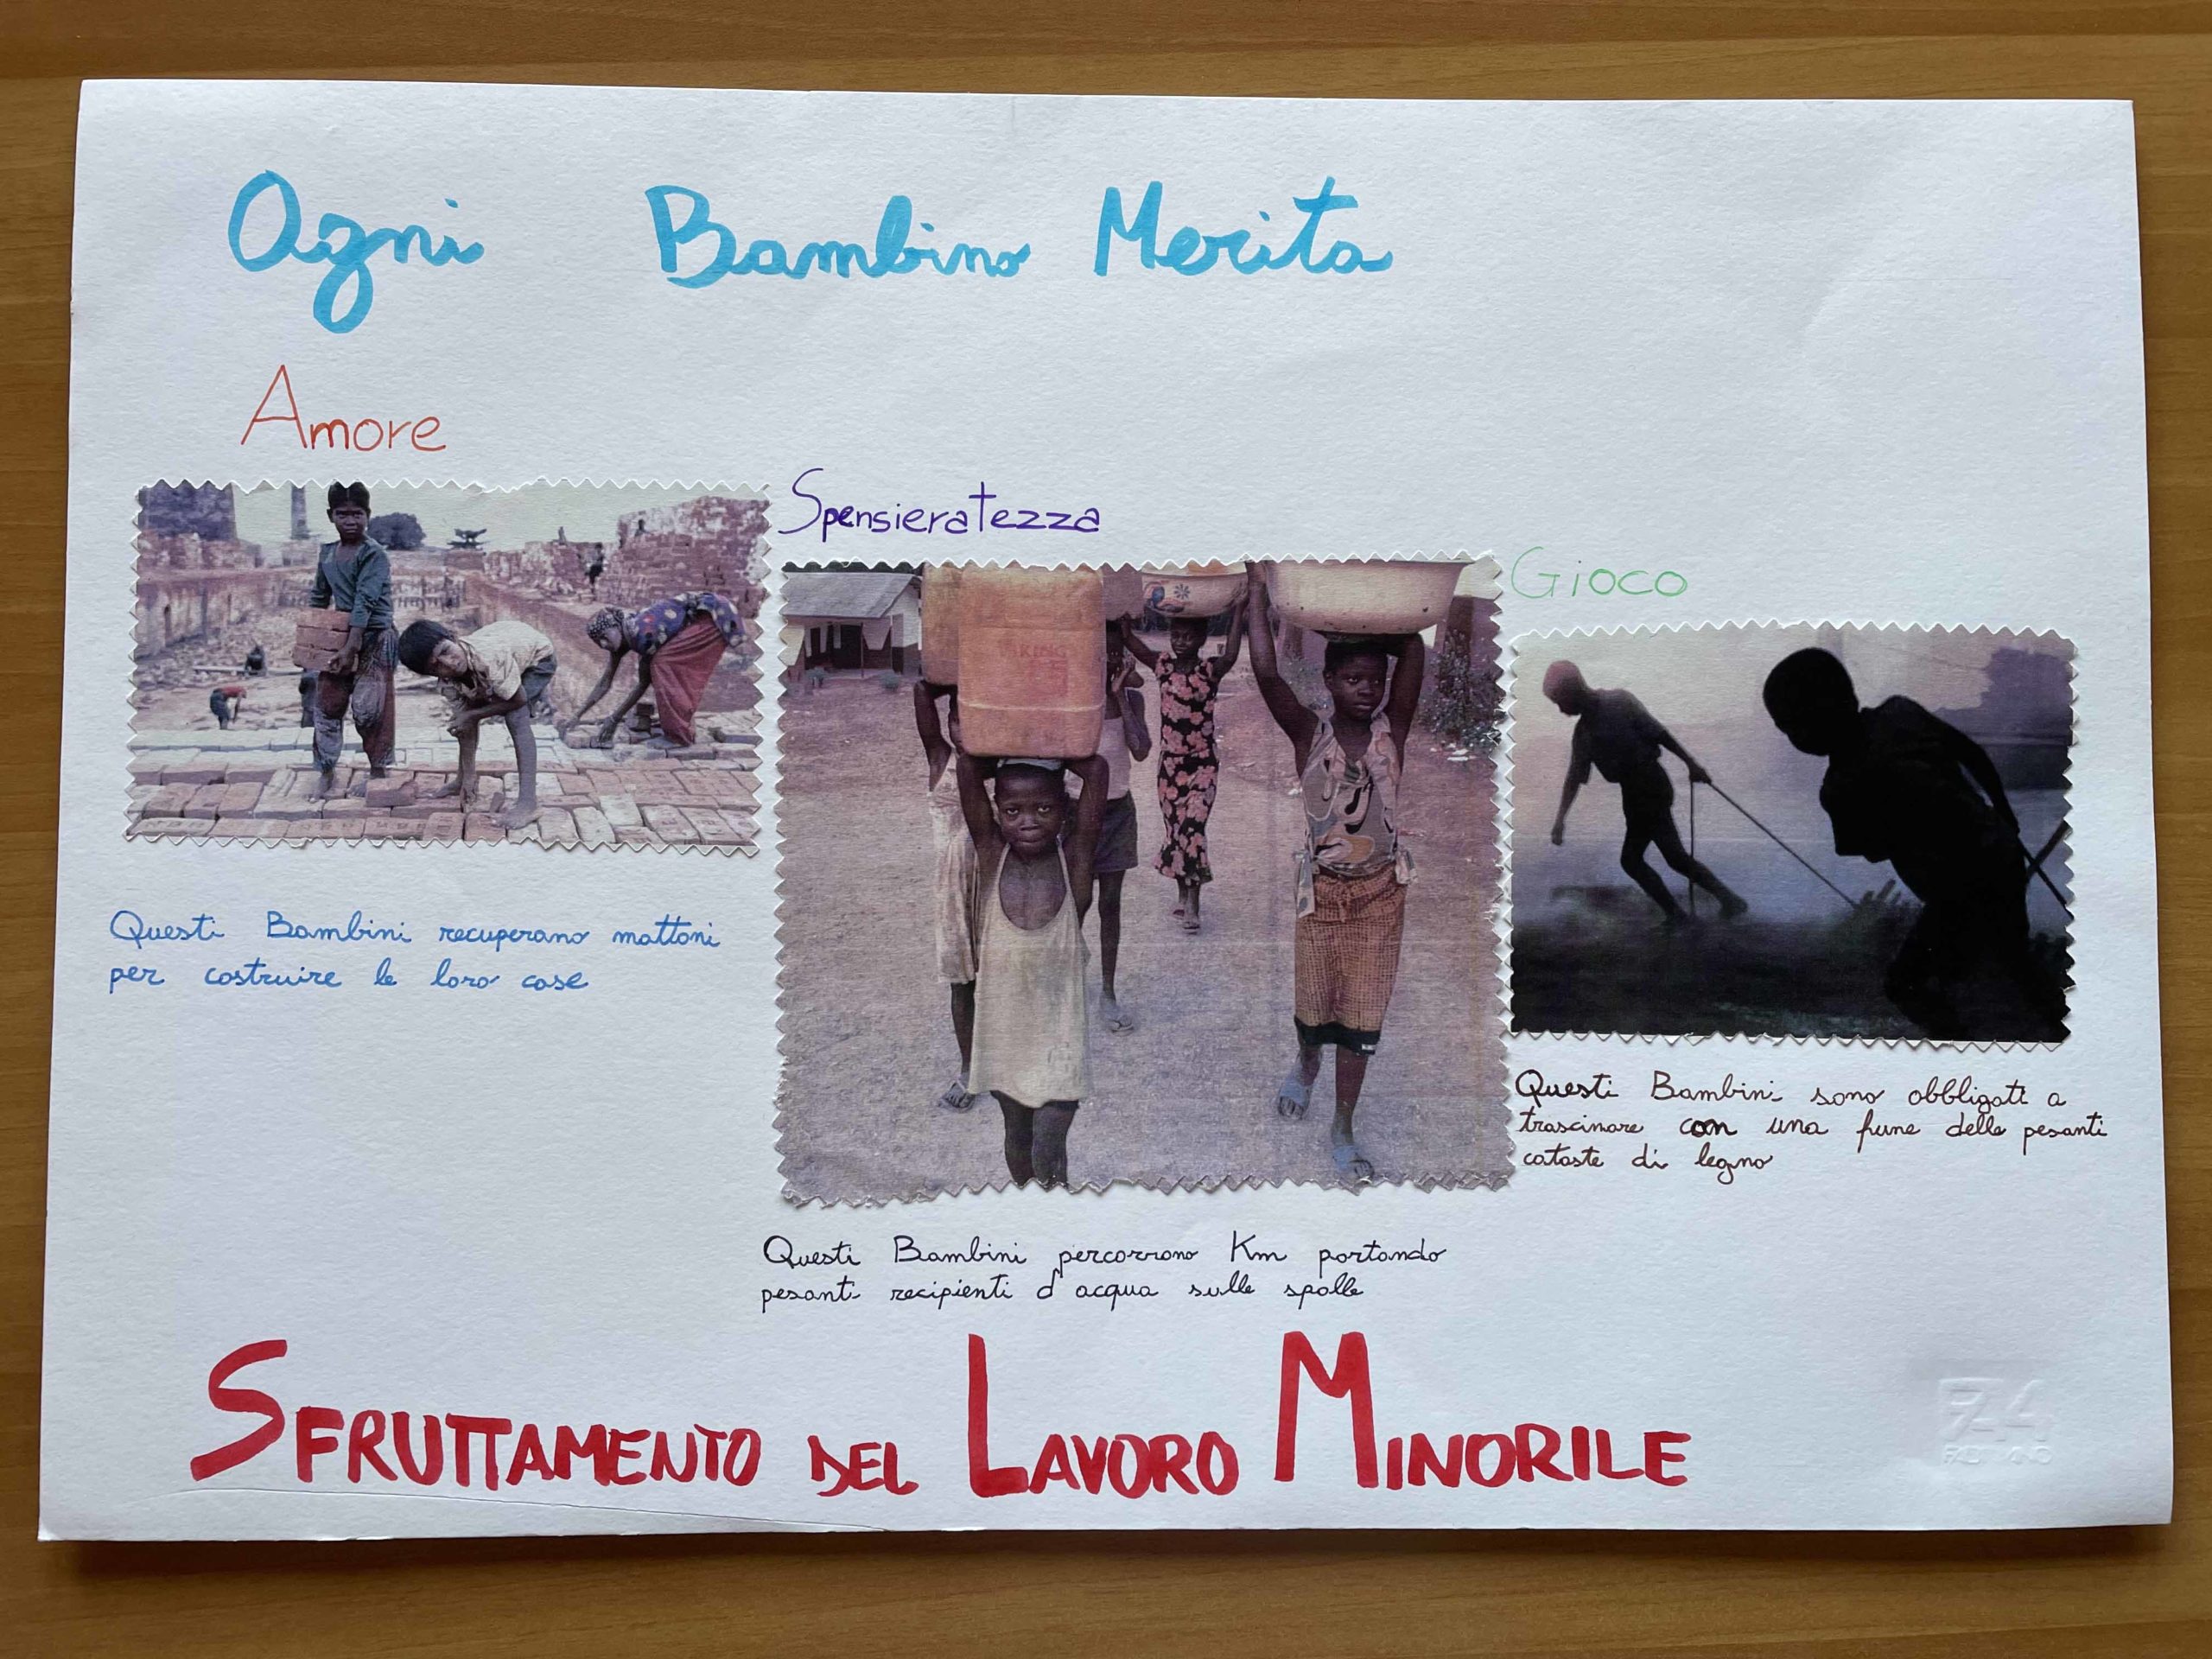 Ogni Bambino Merita
Amore
Spensieratezza
Gioco
VIKING
Questi Bambini recuperano mattoni
per costruire le loro case
Questi Bambini sono obbligati a
trascinare con una fune delle pesanti
cataste di legno
Questi Bambini percorrono Km portando
pesanti recipienti d'acqua sulle spalle
SFRUTTAMENTO DEL LAVORO MINORILE
F4
FABRIANO